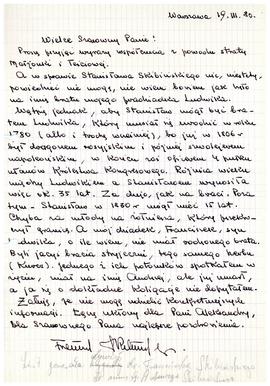 Warszawa 19.III.80.
Wielce Szanowny Panie!
Proszę przyjąć wyrazy współczucia z powodu straty
Małżonki i Teściowej.
A w sprawie Stanisława Skibińskiego nic, niestety,
powiedzieć nie mogę, nie wiem bowiem jak było
na imię bratu mojego pradziadka Ludwika.
Wątpię jednak, aby Stanisław mógł być bra-
tem Ludwika, który musiał się urodzić w roku
1780 (albo i trochę wcześniej), bo już w 1806 r
był dragonem rosyjskim i później szwoleżerem
napoleońskim, w końcu zaś oficerem 4 pułku
ułanów Królestwa Kongresowego. Różnica wieku
między Ludwikiem a Stanisławem wynosiła
więc ok. 35 lat. Za dużo, jak na braci. Poza
tym - Stanisław w 1830 r mógł mieć 15 lat.
Chyba za młody na rotmistrza, który przekro-
czył granicę. A mój dziadek, Franciszek, syn
Ludwika, o ile wiem, nie miał rodzonego brata.
Byli jacyś bracia stryjeczni, tego samego herbu
jednego i ich potomków spotkałem w
życiu, miał na imię Andrzej, ale już umarł,
a ja się o dokładne koligacje nie dopytałem.
Żałuję, że nie mogę udzielić konkretniejszych
informacji. Łączę ukłony dla Pani Aleksandry,
dla Szanownego Pana najlepsze pozdrowienia.
List generała Skibińskiego